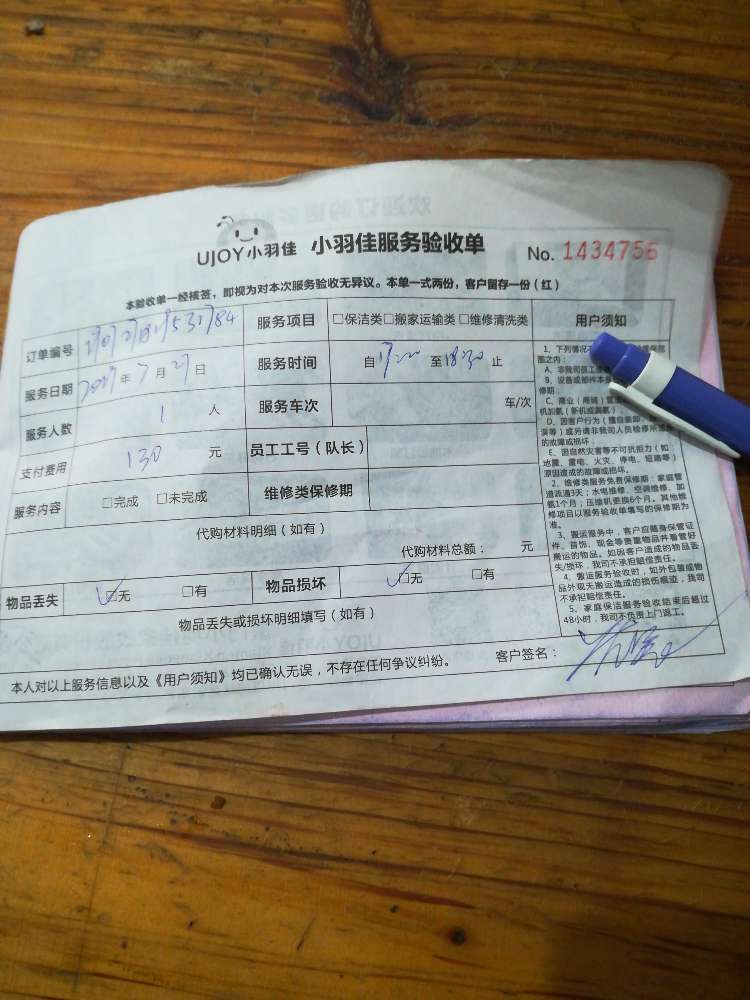 UJOY小羽佳 小羽佳服务验收单 No. 1434756
本验收单一经核签，即视为对本次服务验收无异议。本单一式两份，客户留存一份（红）
订单编号 服务项目 □保洁类□搬家运输类□维修清洗类 用户须知
服务日期 年7月27日 服务时间 自17:00至18:30止
服务人数 1 人 服务车次 车/次
支付费用 130 元 员工工号（队长）
服务内容 □完成 □未完成 维修类保修期
代购材料明细（如有）
代购材料总额： 元
物品丢失 ☑无 □有 物品损坏 ☑无 □有
物品丢失或损坏明细填写（如有）
本人对以上服务信息以及《用户须知》均已确认无误，不存在任何争议纠纷。 客户签名：
1、下列情况
围之内：
A、非我司员工
B、设备或部件本身
修期；
C、商业（商铺）
机加氨（新机或漏氨）
D、因客户行为（擅自
演等）或另请非我司人员检修所
的故障或损坏；
E、因自然灾害等不可抗拒力（如
地震、雷电、火灾、停电、短路等）
原因造成的故障或损坏。
2、维修类服务免费保修期：家庭管
道疏通3天；水电维修、空调维修、加
氨1个月；压缩机更换6个月。其他维
修项目以服务验收单填写的保修期为
准。
3、搬运服务中，客户应随身保管证
件、首饰、现金等贵重物品并看管好
搬运的物品。如因客户造成的物品丢
失/损坏，我司不承担赔偿责任。
4、搬运服务验收时，如外包装或物
品外观无搬运造成的损伤痕迹，我司
不承担赔偿责任。
5、家庭保洁服务验收结束后超过
48小时，我司不负责上门返工。